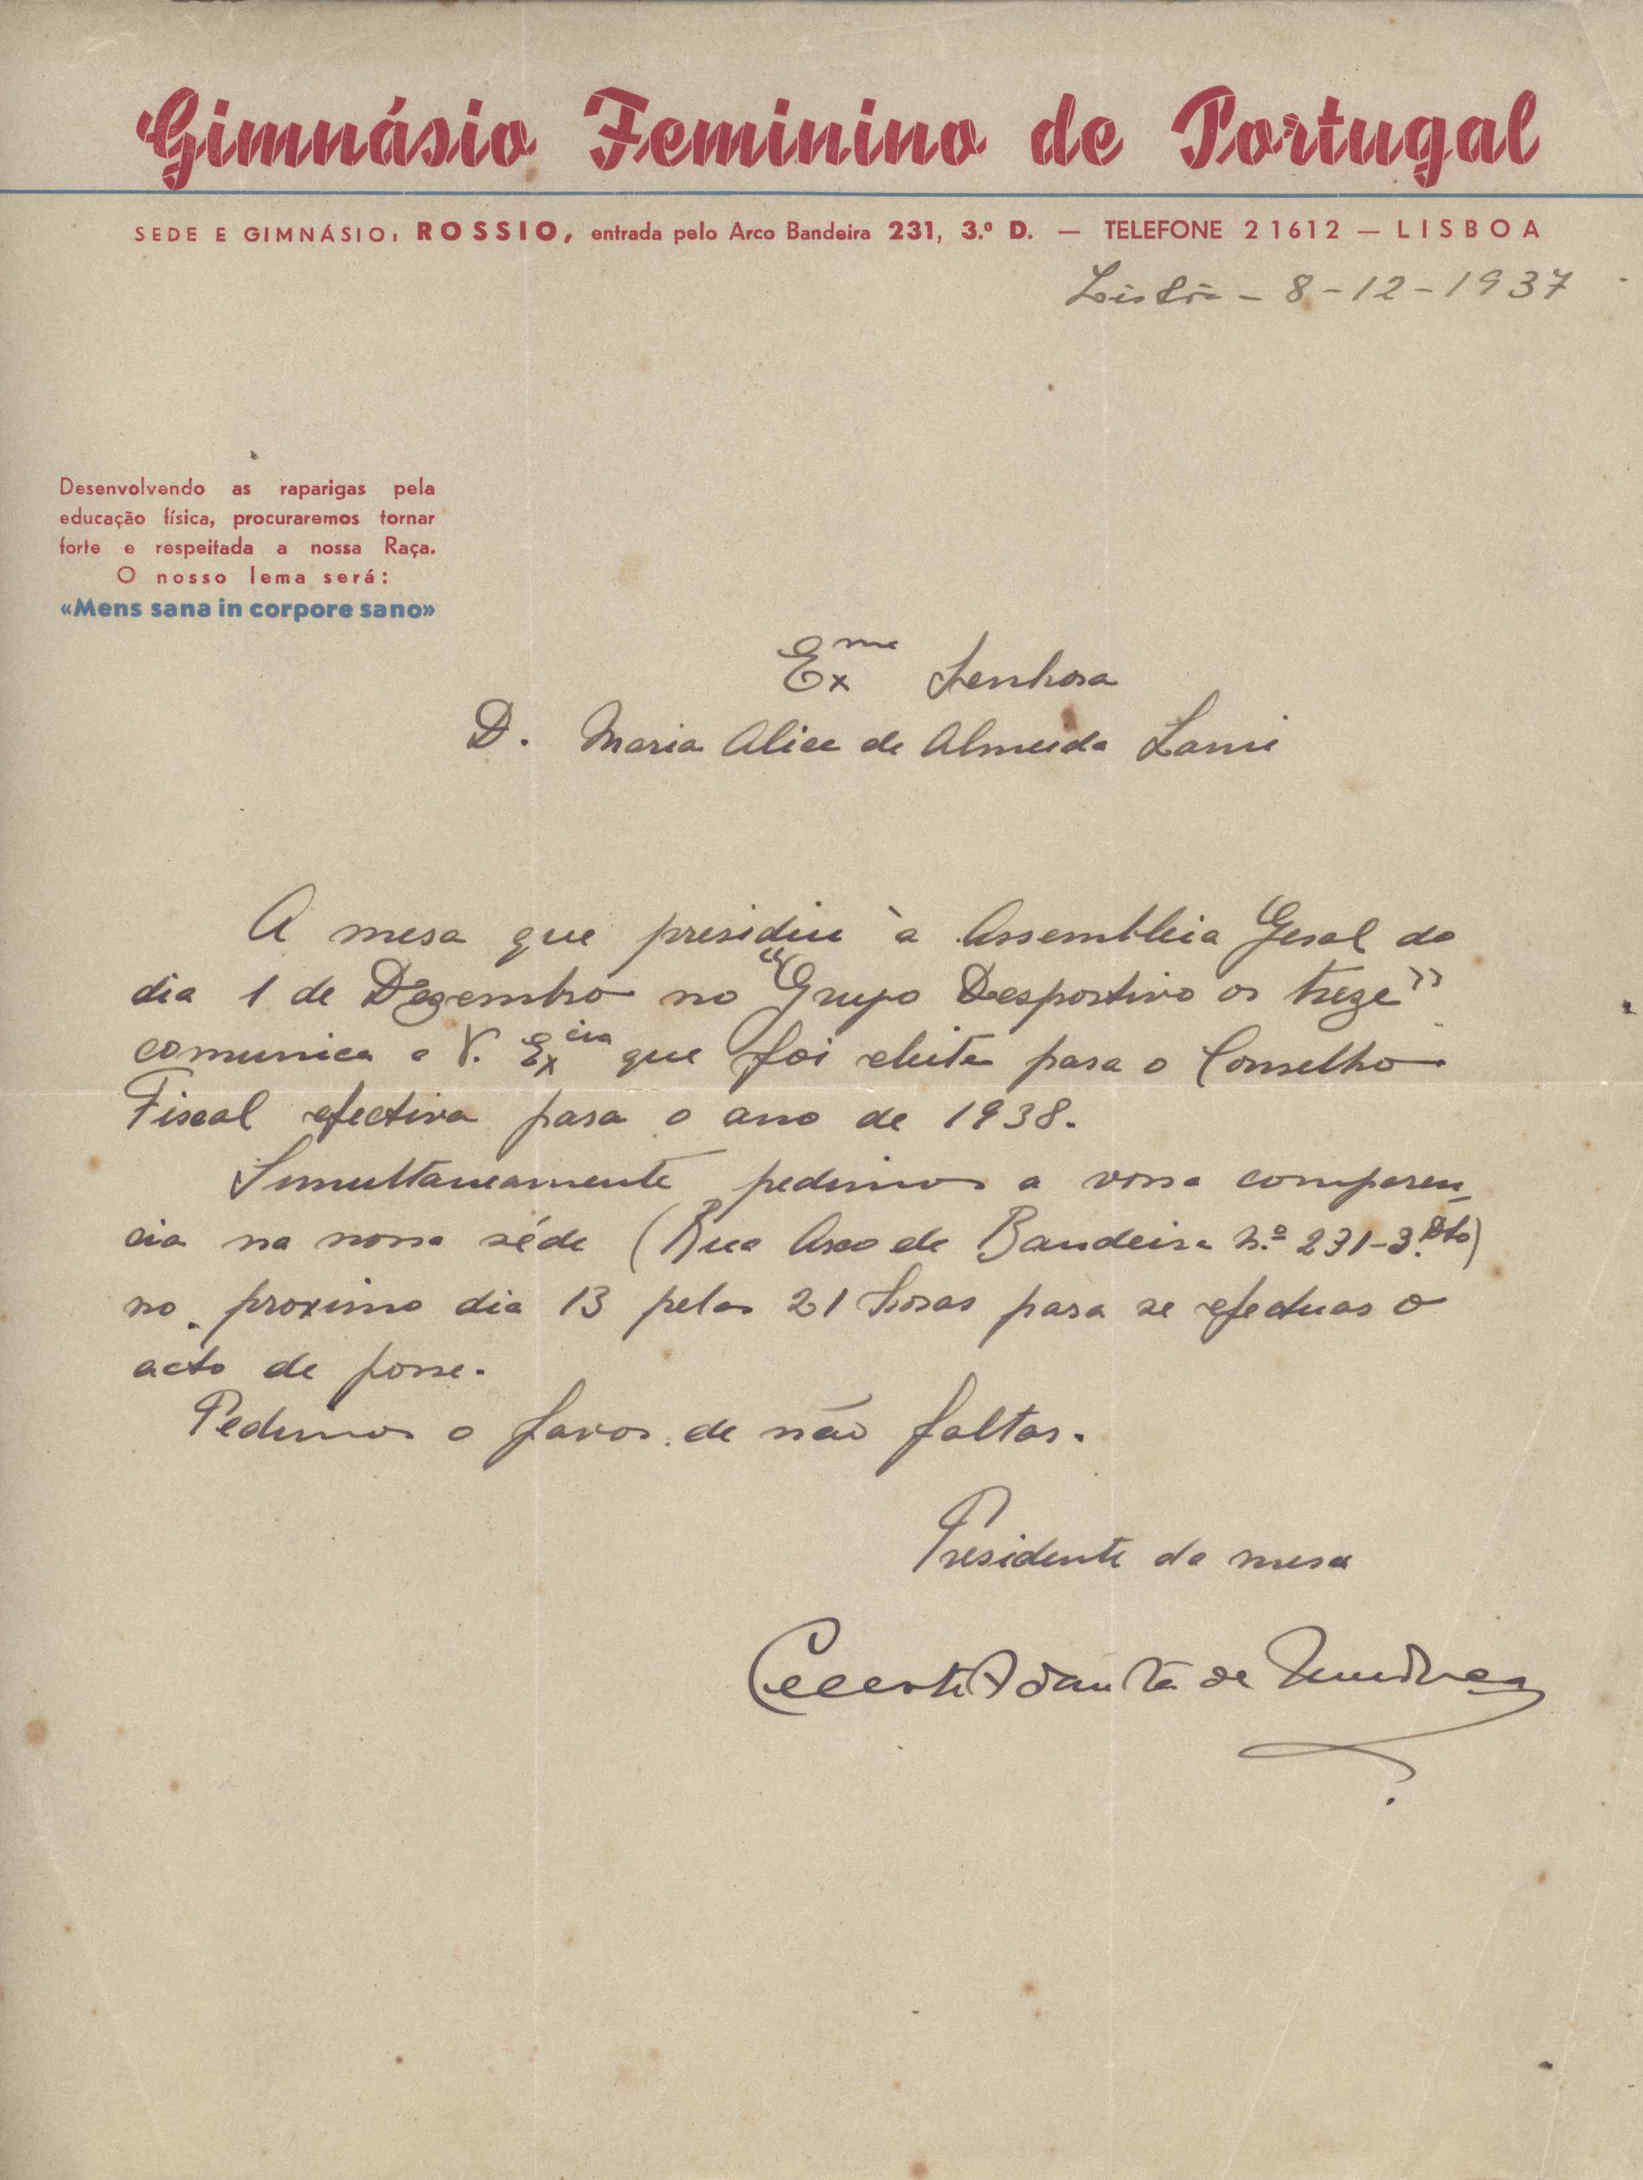 Gimnásio Feminino de Portugal
SEDE E GIMNÁSIO: ROSSIO, entrada pelo Arco Bandeira 231, 3.º D. — TELEFONE 21612 — LISBOA
Lisbôa - 8-12-1937
Desenvolvendo as raparigas pela
educação física, procuraremos tornar
forte e respeitada a nossa Raça.
O nosso lema será:
«Mens sana in corpore sano»
Exma Senhora
D. Maria Alice de Almeida Lami
A mesa que presidiu à Assembleia Geral do
dia 1 de Dezembro no "Grupo Desportivo os treze"
comunica a V. Excia que foi eleita para o Conselho
Fiscal efectiva para o ano de 1938.
Simultaneamente pedimos a vossa comparen_
cia na nossa séde (Rua Arco de Bandeira N.º 231-3.º Dto)
no proximo dia 13 pelas 21 horas para se efectuar o
acto de posse.
Pedimos o favor de não faltar.
Presidente da mesa
Celeste de